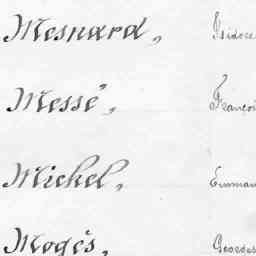 Mesnard, Isidore
Messé, Françoi
Michel, Emman
Mogès, Georges